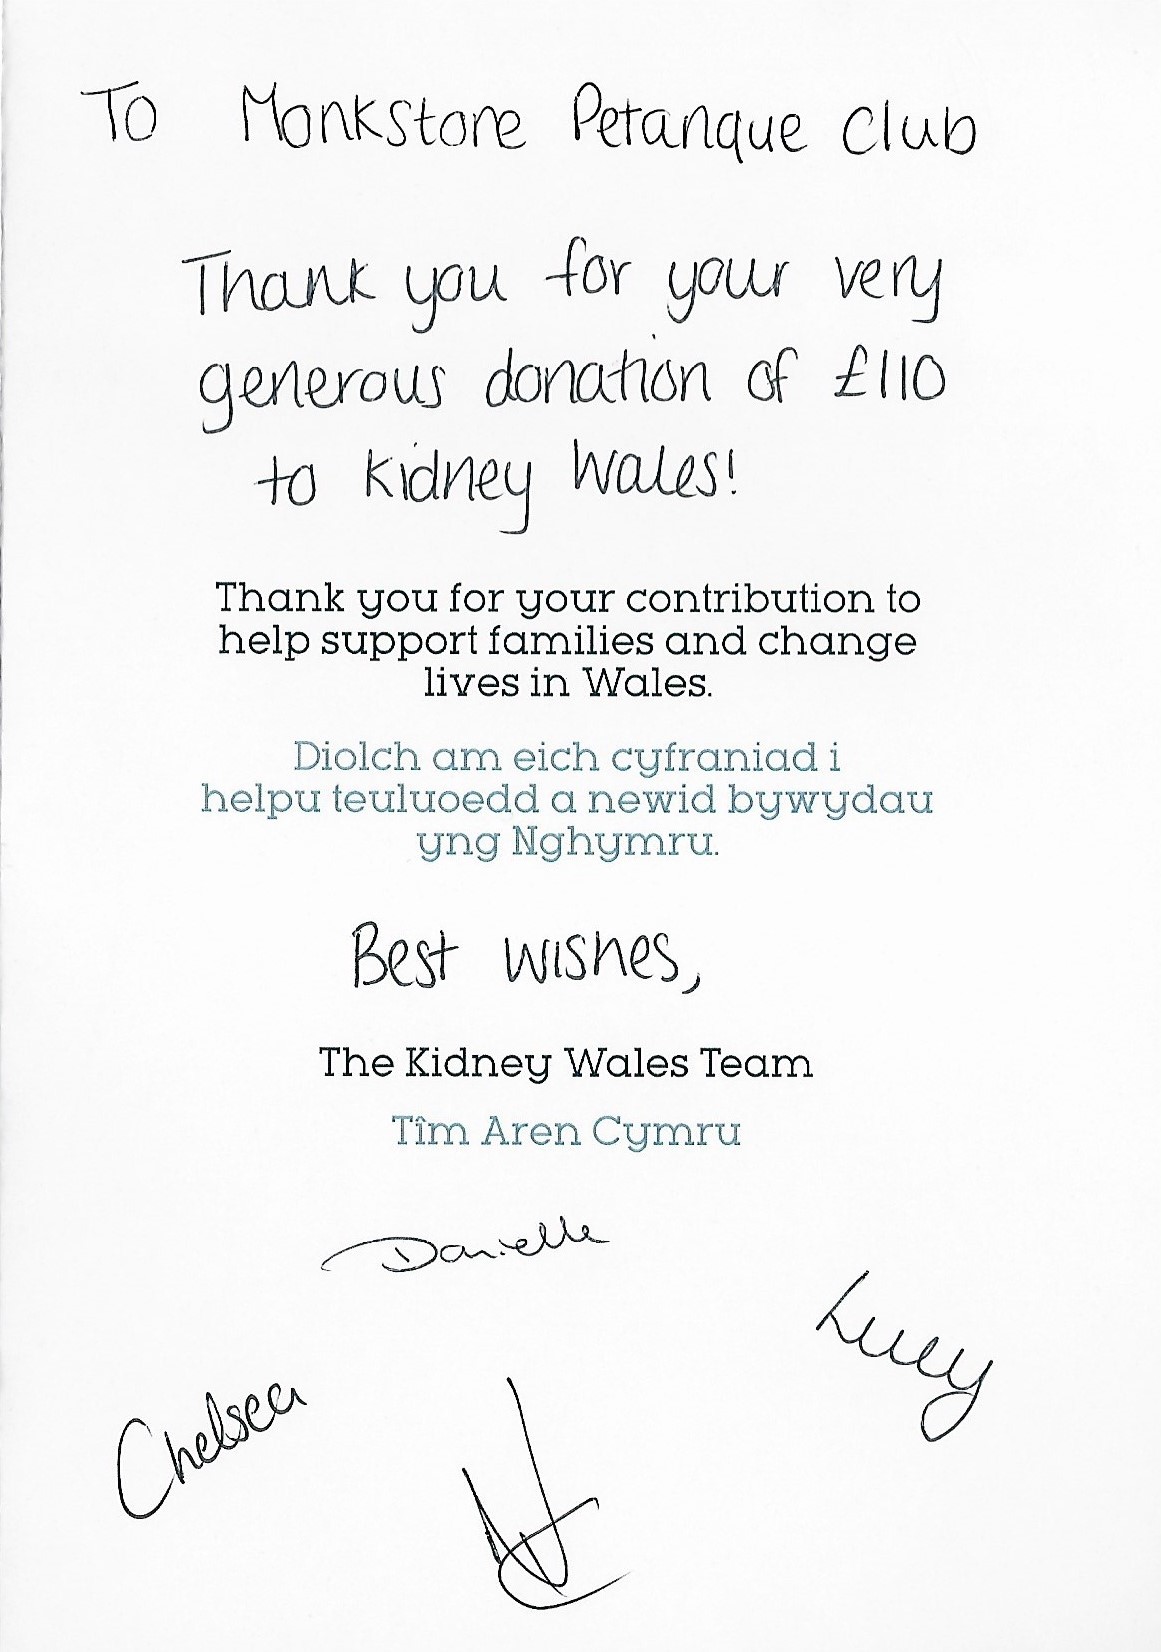 To Monkstone Petanque Club
Thank you for your very
generous donation of £110
to Kidney Wales!
Thank you for your contribution to
help support families and change
lives in Wales.
Diolch am eich cyfraniad i
helpu teuluoedd a newid bywydau
yng Nghymru.
Best wishes,
The Kidney Wales Team
Tîm Aren Cymru
Danielle
Lucy
Chelsea